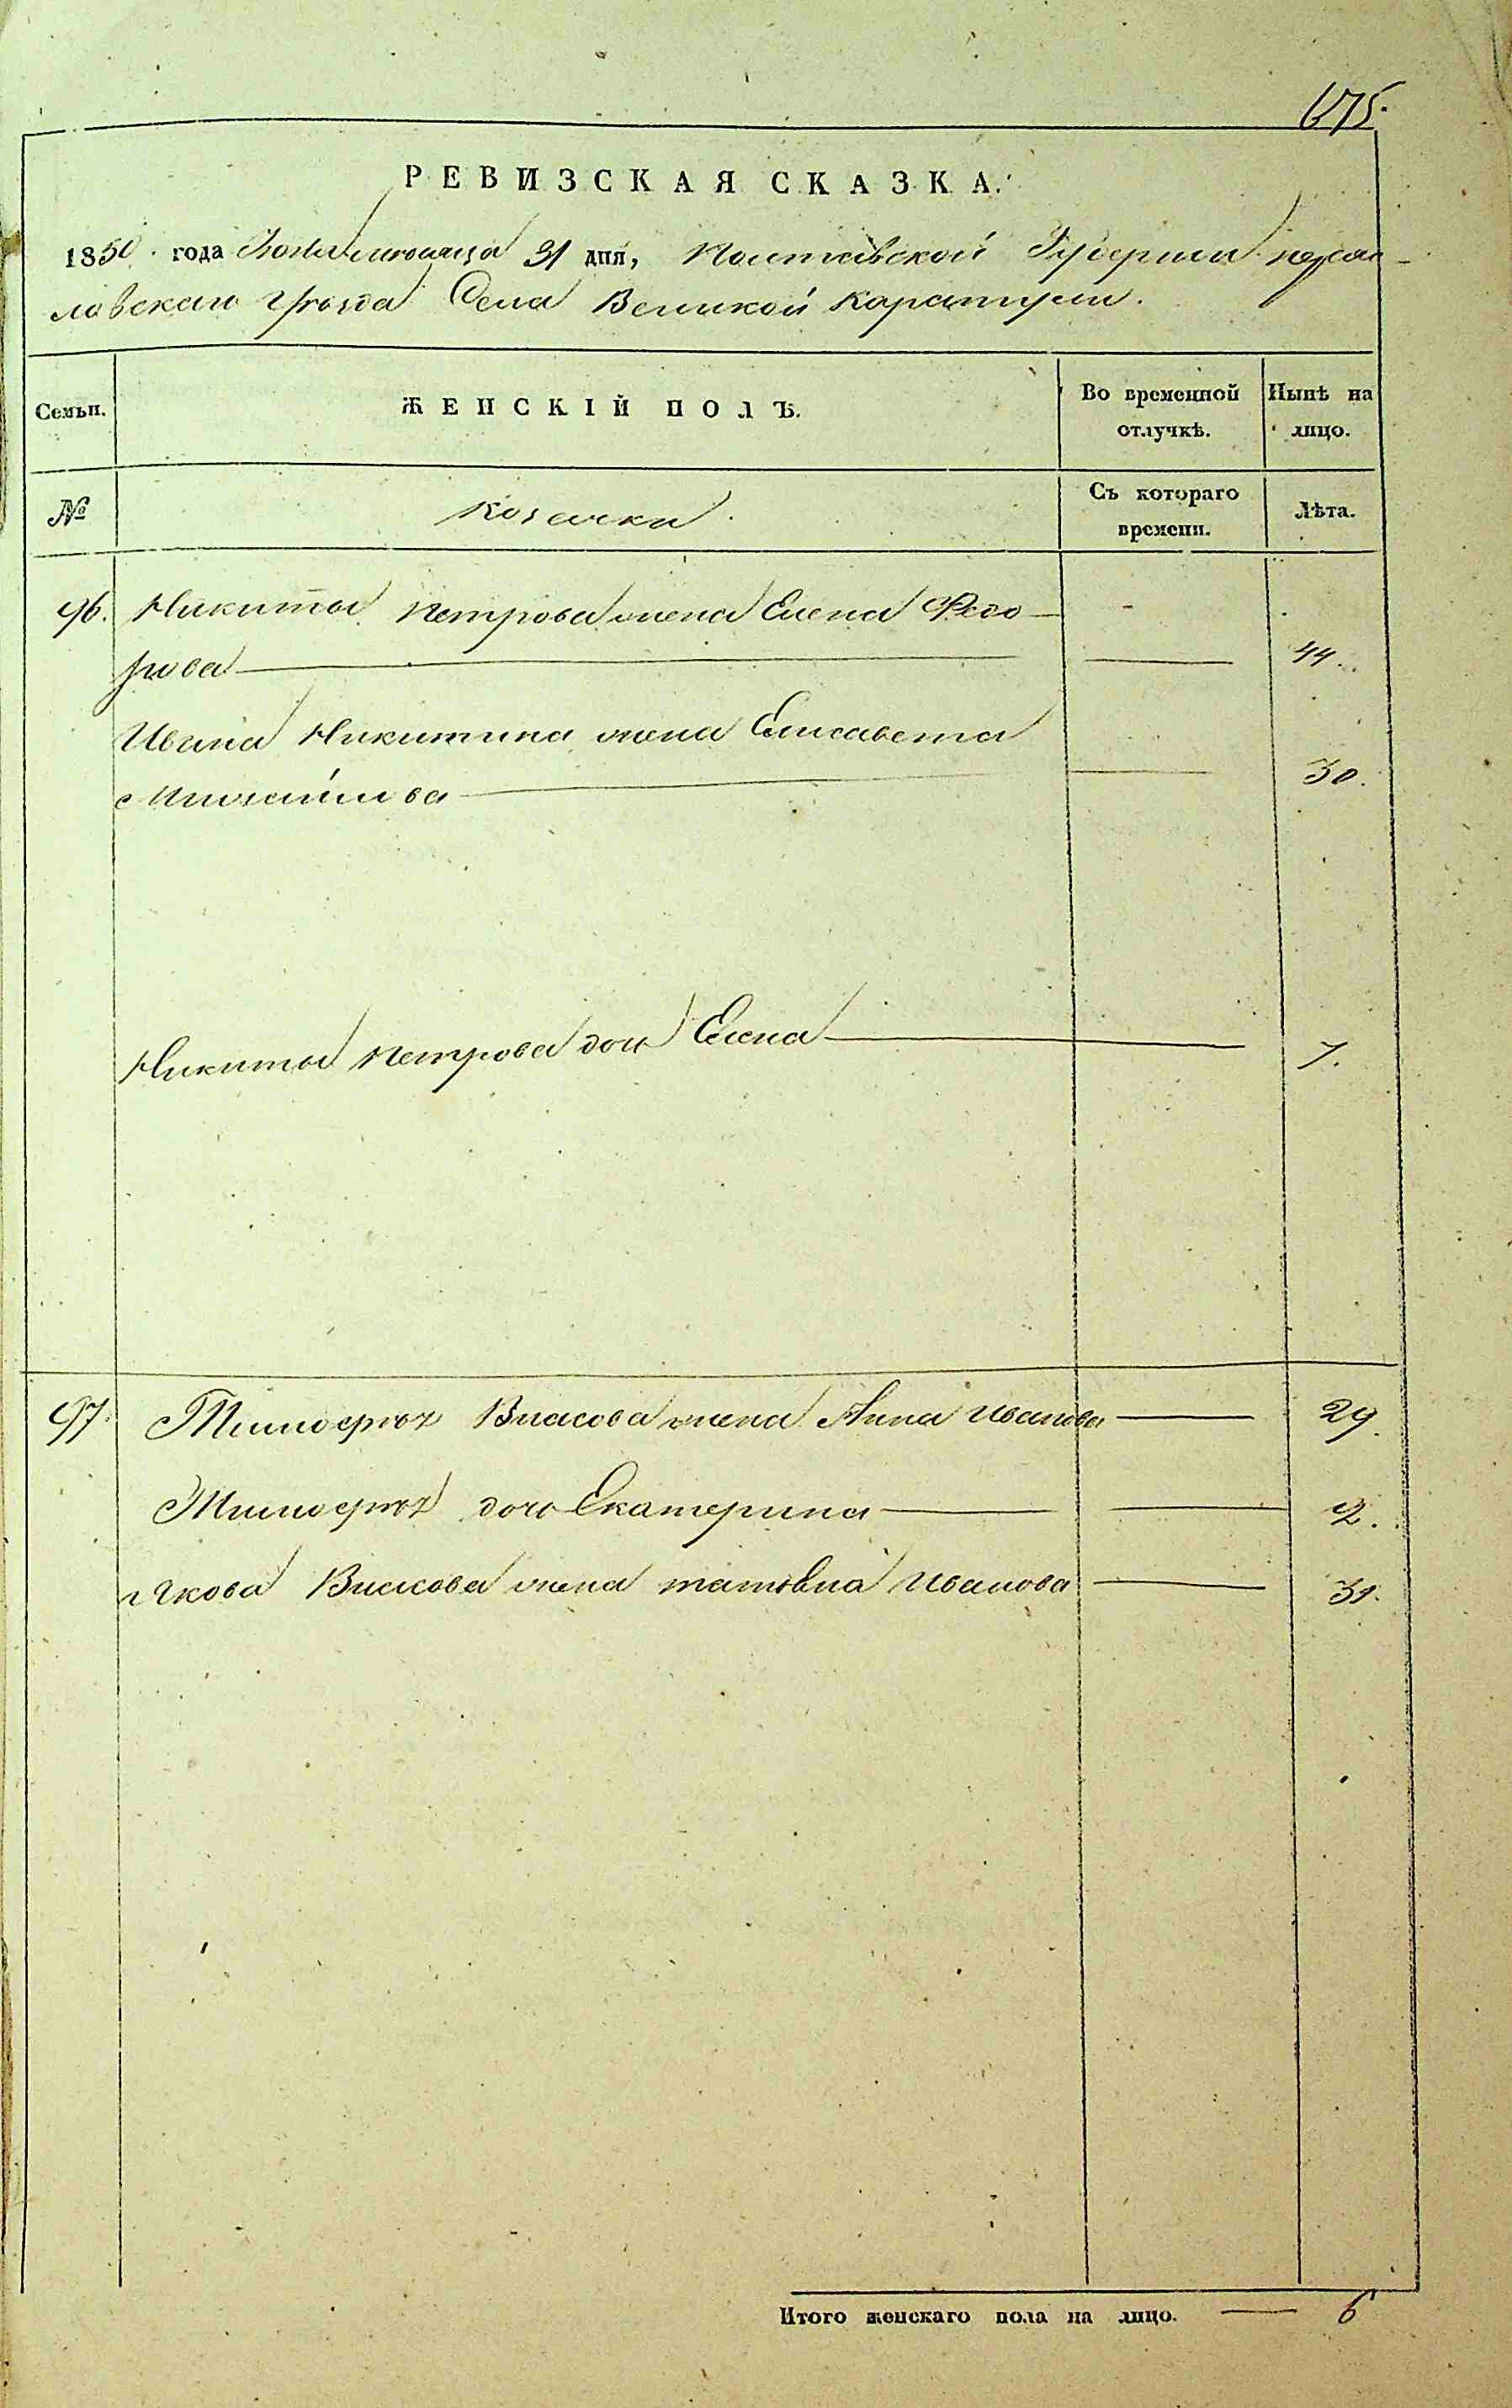 675.
РЕВИЗСКАЯ СКАЗКА.
1850. года мѣсяца 31 дня, Полтавской Губерніи переяс-
лавскаго уѣзда Села Великой Каратули.
Семьи. ЖЕНСКІЙ ПОЛЪ. Во временной отлучкѣ. Нынѣ на лицо.
№ Козачки. Съ котораго времени. Лѣта.
96. Никиты Петрова жена Елена Федо-
рова 44.
Ивана Никитина жена Елисавета
Михайлова 30.
Никиты Петрова дочь Елена 7.
97. Тимофѣя Власова жена Анна Иванова 29.
Тимофѣя дочь Екатерина 2.
Якова Власова жена татьяна Иванова 31.
Итого женскаго пола на лицо. 6